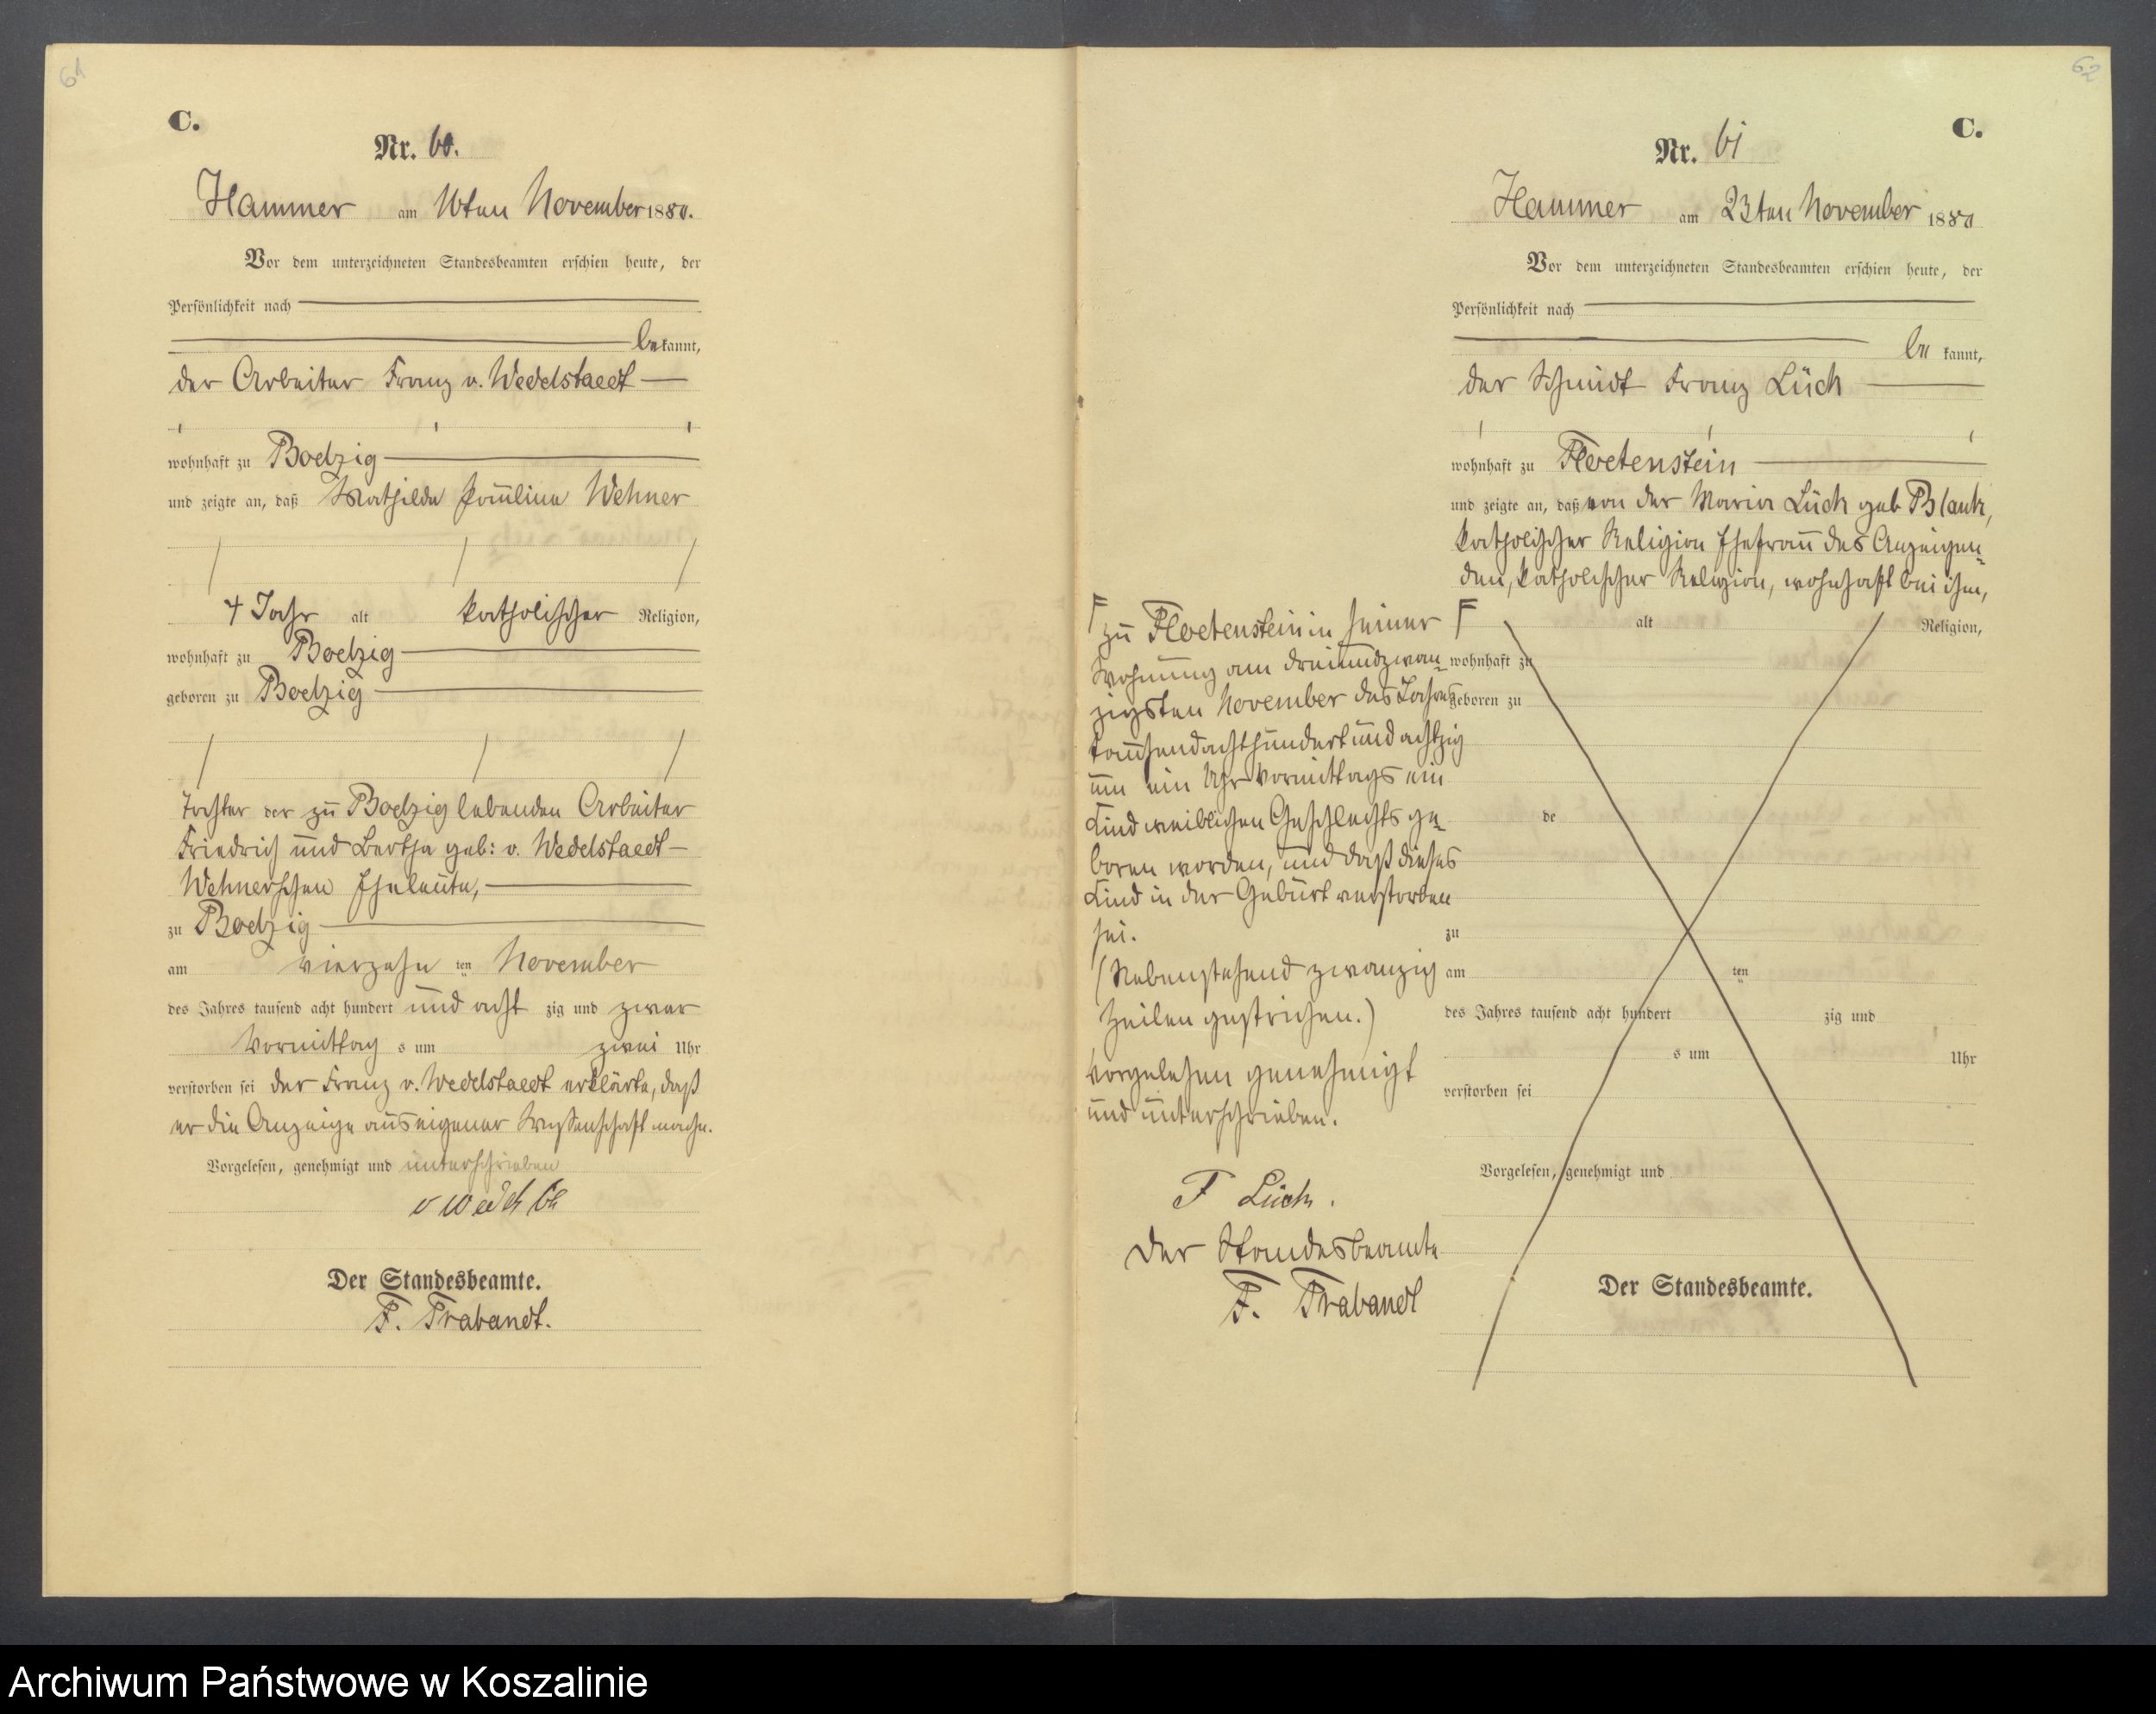 61
C.
Nr. 60.
Hammer am 16ten November 1880.
Vor dem unterzeichneten Standesbeamten erschien heute, der
Persönlichkeit nach
bekannt,
der Arbeiter Franz v. Wedelstaedt
wohnhaft zu Boelzig
und zeigte an, daß Mathilde Pauline Wehner
4 Jahr alt katholischer Religion,
wohnhaft zu Boelzig
geboren zu Boelzig
Tochter der zu Boelzig lebenden Arbeiter
Friedrich und Bertha geb: v. Wedelstaedt
Wehnerschen Eheleute,
zu Boelzig
am vierzehn ten November
des Jahres tausend acht hundert und acht zig und zwar
Vormittag s um zwei Uhr
verstorben sei der Franz v. Wedelstaedt erklärte, daß
er die Anzeige aus eigener Wissenschaft mache.
Vorgelesen, genehmigt und unterschrieben
Der Standesbeamte.
F. Trabandt.
62
C.
Nr. 61
Hammer am 23ten November 1880
Vor dem unterzeichneten Standesbeamten erschien heute, der
Persönlichkeit nach
be kannt,
der Schmidt Franz Lück
wohnhaft zu Floetenstein
und zeigte an, daß von der Maria Lück geb Blank,
katholischer Religion Ehefrau des Anzeigen-
den, katholischer Religion, wohnhaft bei ihm,
F
zu Floetenstein in seiner
Wohnung am dreiundzwan-
zigsten November des Jahres
tausendachthundertundachtzig
um ein Uhr Vormittags ein
Kind weiblichen Geschlechts ge-
boren worden, und daß dieses
Kind in der Geburt verstorben
sei.
(Nebenstehend zwanzig
Zeilen gestrichen.)
Vorgelesen genehmigt
und unterschrieben.
F Lück.
Der Standesbeamte
F. Trabandt
F
alt Religion,
wohnhaft zu
geboren zu
de
zu
am ten
des Jahres tausend acht hundert zig und
s um Uhr
verstorben sei
Vorgelesen, genehmigt und
Der Standesbeamte.
Archiwum Państwowe w Koszalinie